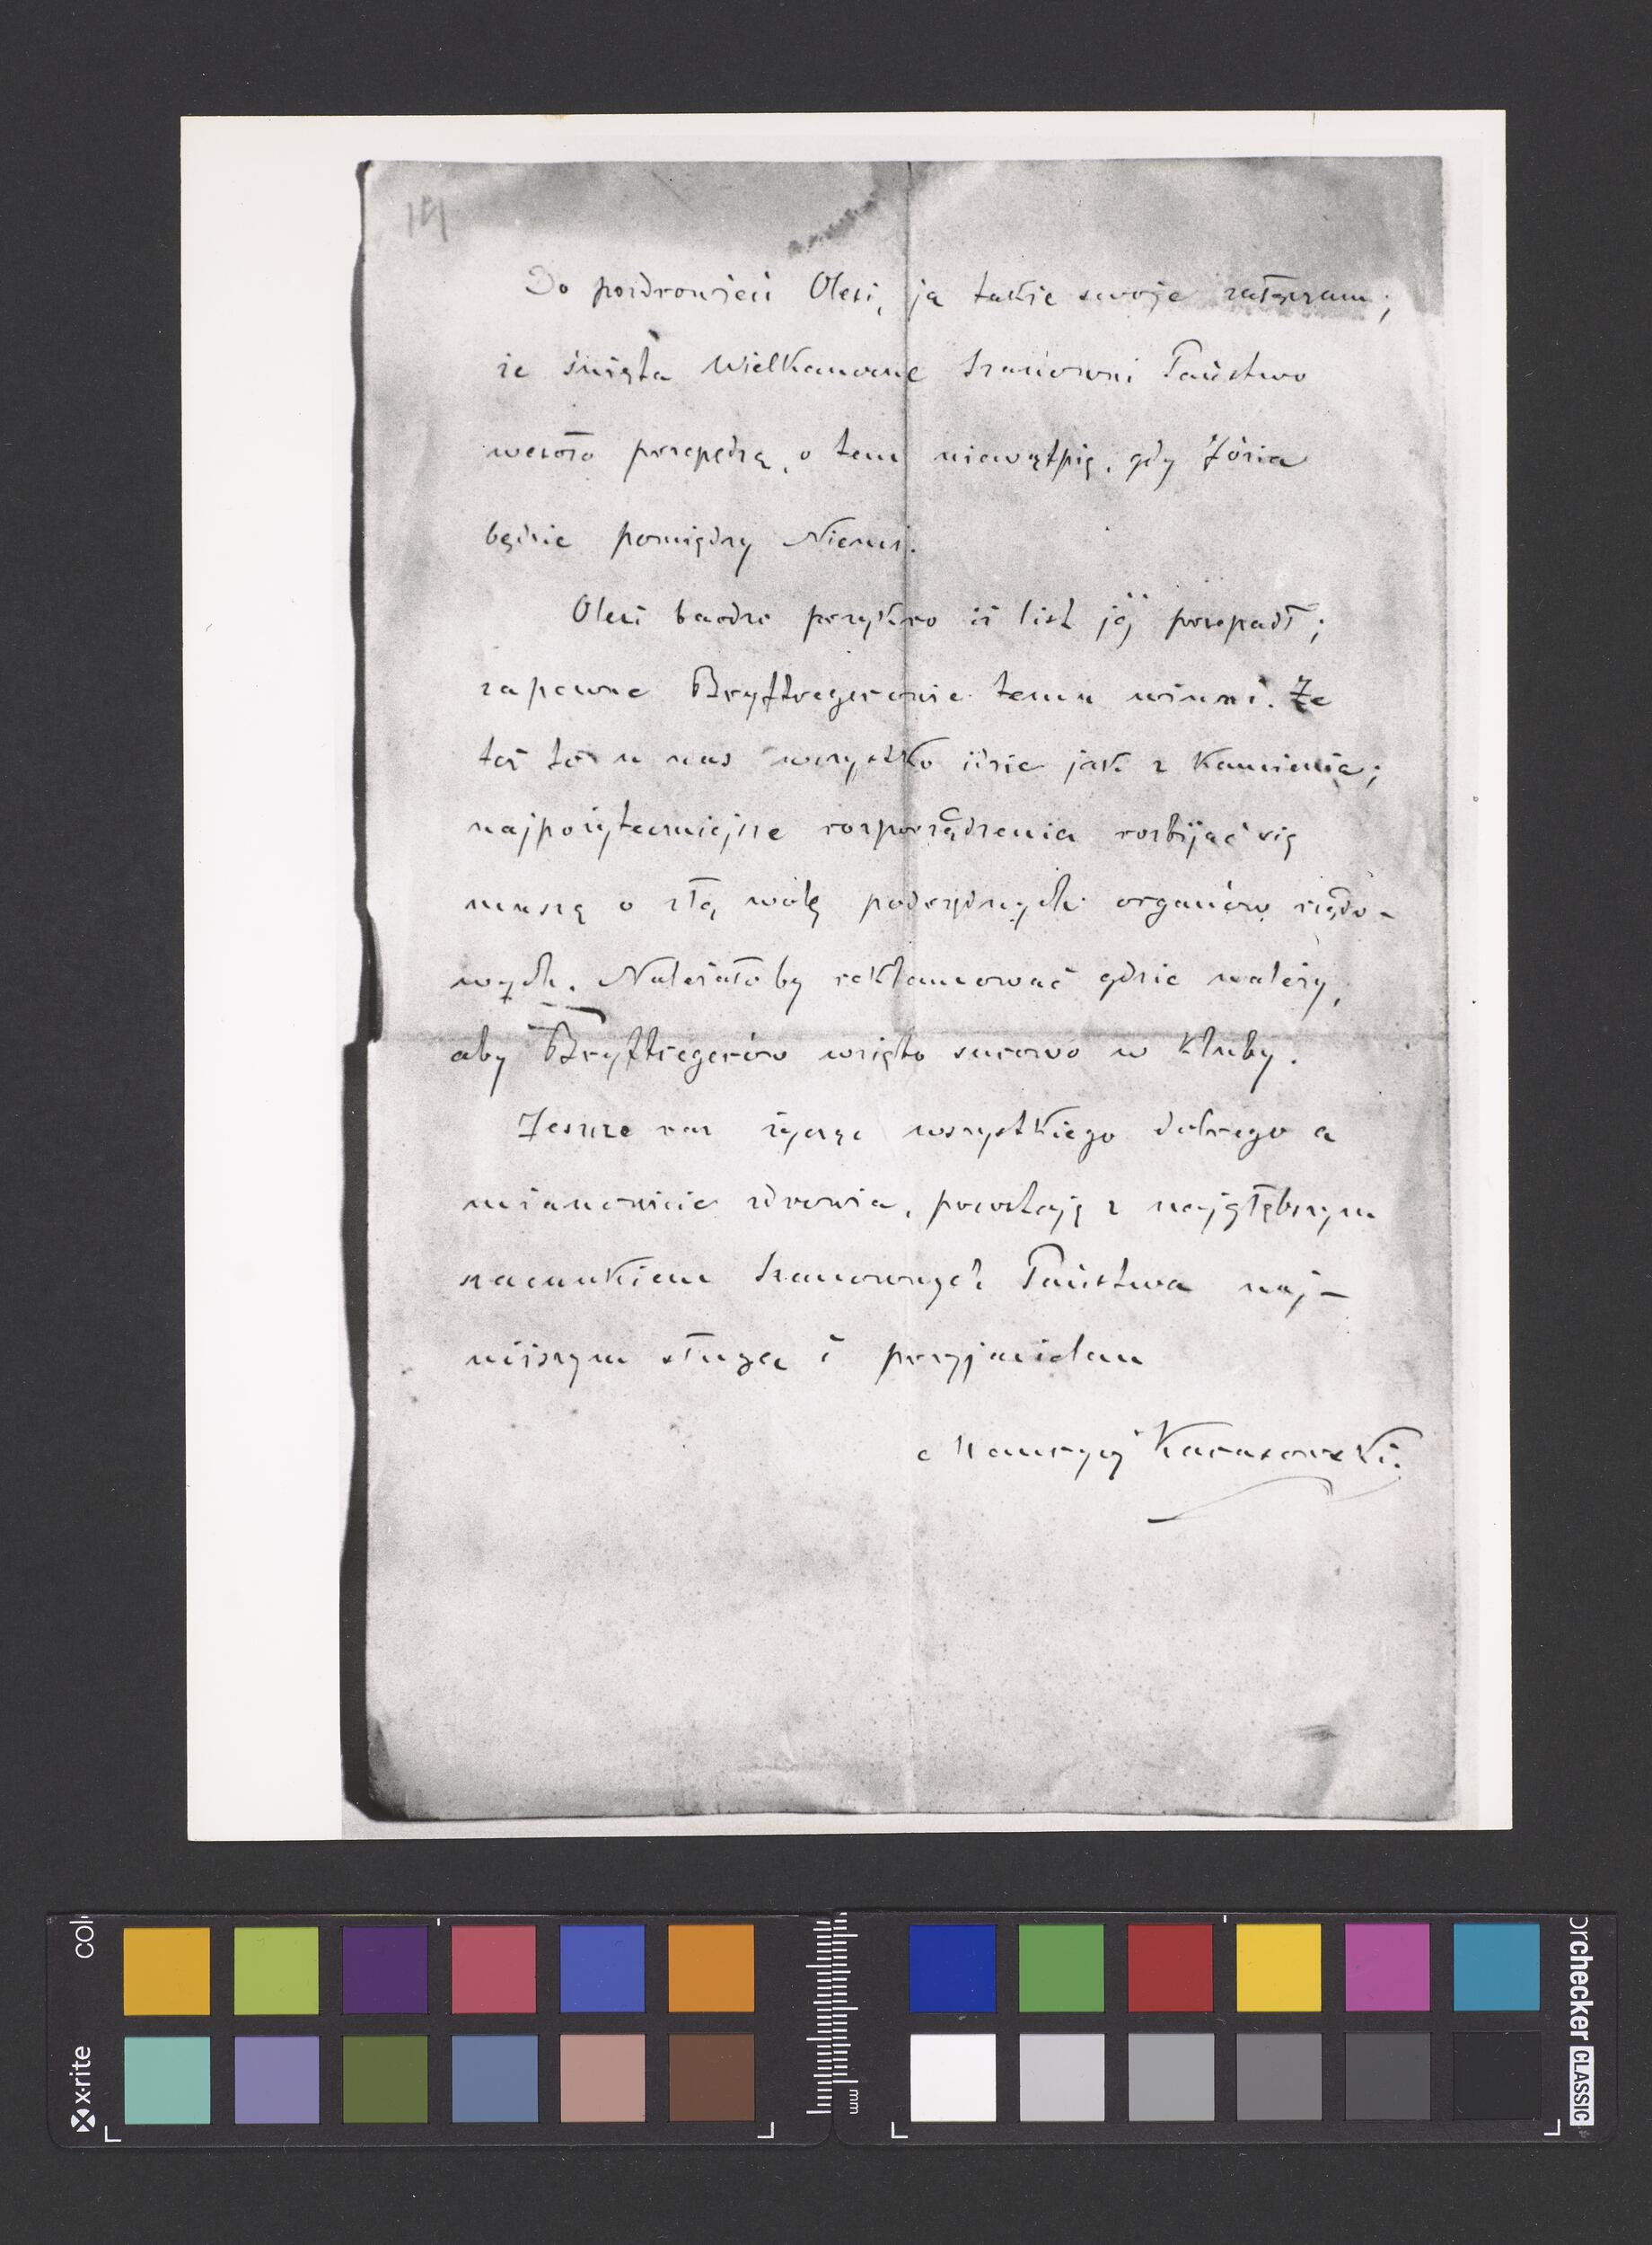 14
Do pozdrowień Olesi, ja także swoje załączam;
że święta Wielkanocne Szanowni Państwo
wesoło przepędzą, o tem niewątpię, gdy Józia
będzie pomiędzy Niemi.
Olesi bardzo przykro iż list jéj przepadł;
zapewne Bryftregerowie temu winni. Że
też to u nas wszystko idzie jak z Kamienia;
najpożyteczniejsze rozporządzenia rozbijać się
muszą o złą wolę podrzędnych organów rządo-
wych. Należałoby reklamować gdzie należy,
aby Bryftregerów wzięto surowo w kluby.
Jeszcze raz życząc wszystkiego dobrego a
mianowicie zdrowia, pozostaję z najgłębszym
szacunkiem Szanownych Państwa naj-
niższym sługą i przyjacielem
Maurycy Karasowski.
x-rite
colorchecker CLASSIC
mm